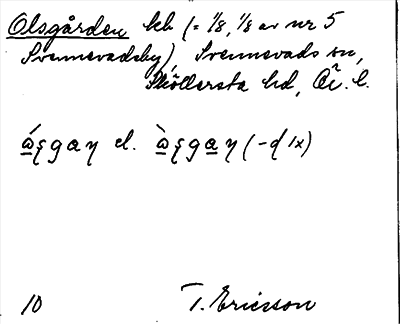 Olsgården hd (= 1/8, 1/8 av nr 5
Svennevadsby), Svennevads sn,
Sköllersta hd, Ör. l.
el. (-d 1x)
10 T. Ericsson